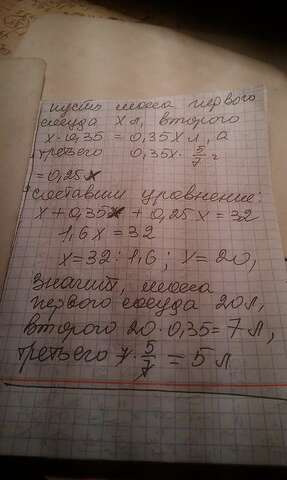 пусть масса первого
сосуда х л, второго
х·0,35 = 0,35х л, а
третьего 0,35х·5/7 =
= 0,25х
составим уравнение:
х+0,35х + 0,25х = 32
1,6х = 32
х=32:1,6; х=20,
значит, масса
первого сосуда 20л,
второго 20·0,35=7л,
третьего 7·5/7 = 5 л